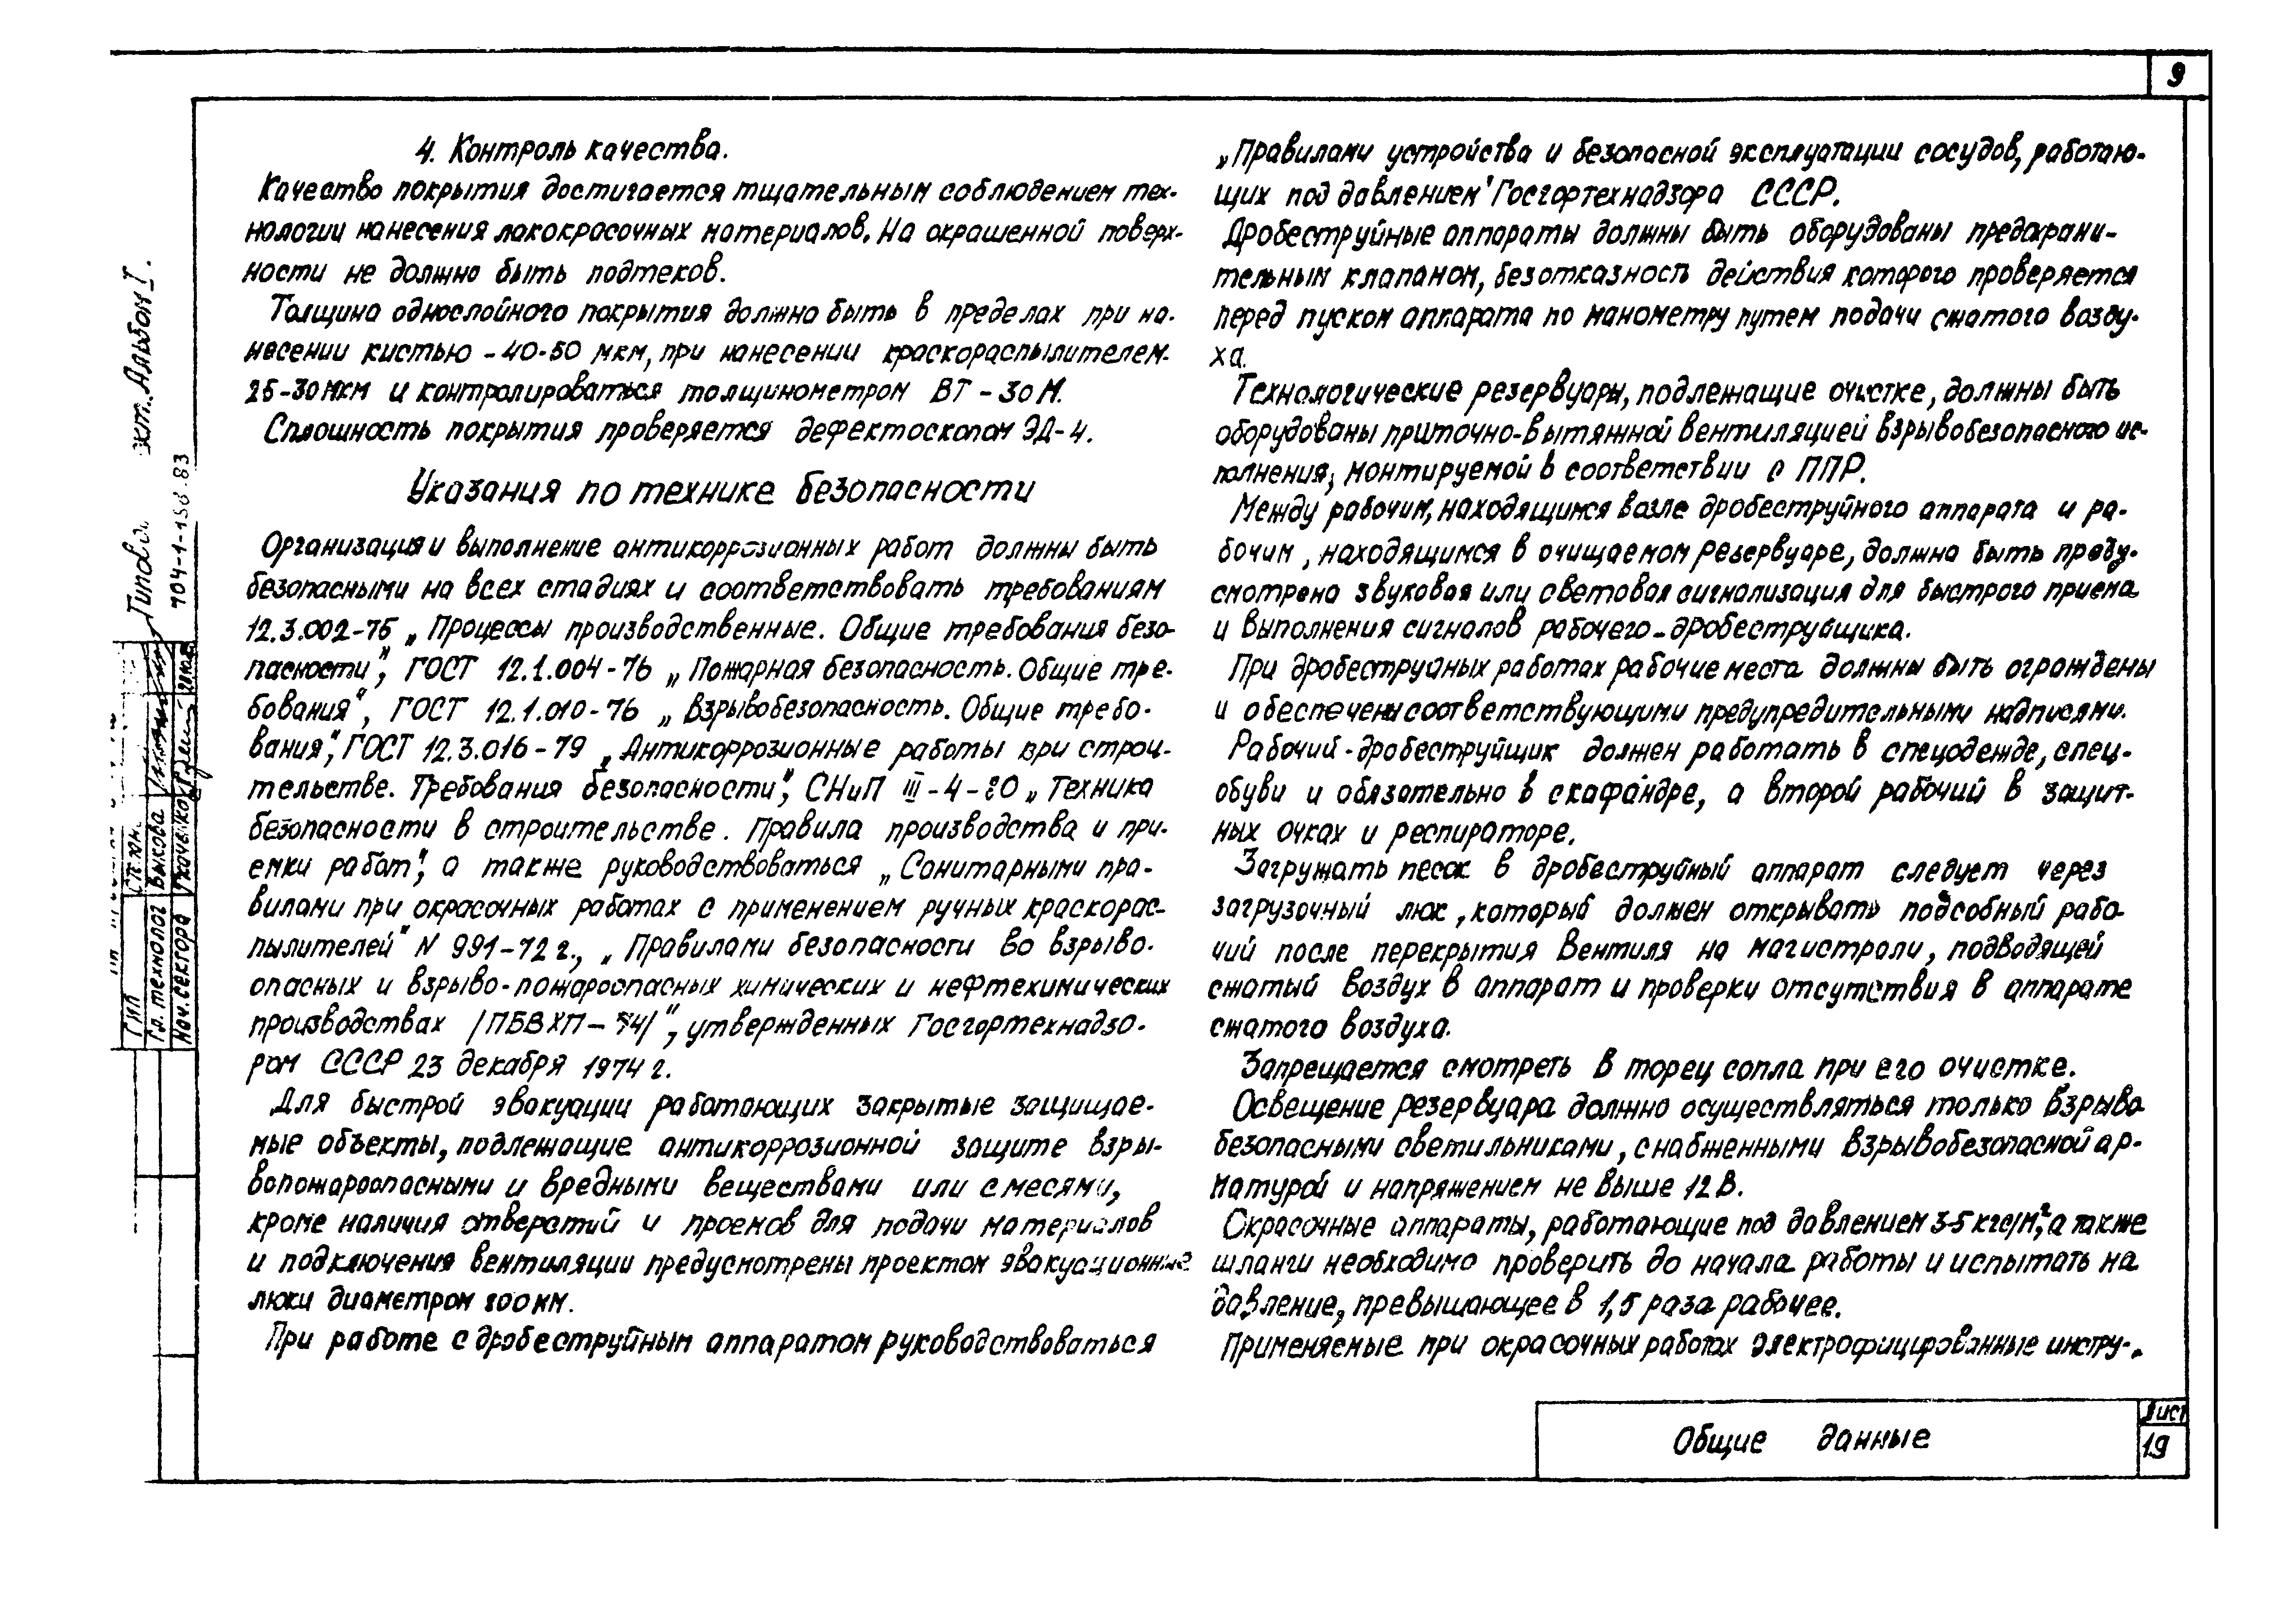 9
4. Контроль качества.
Качество покрытия достигается тщательным соблюдением тех-
нологии нанесения лакокрасочных материалов. На окрашенной поверх-
ности не должно быть подтеков.
Толщина однослойного покрытия должно быть в пределах при на-
несении кистью - 40-50 мкм, при нанесении краскораспылителем-
25-30 мкм и контролироваться толщинометром ВТ-30М.
Сплошность покрытия проверяется дефектоскопом ЭД-4.
Указания по технике безопасности
Организация и выполнение антикоррозионных работ должны быть
безопасными на всех стадиях и соответствовать требованиям
12.3.002-75 „Процессы производственные. Общие требования безо-
пасности", ГОСТ 12.1.004-76 „Пожарная безопасность. Общие тре-
бования", ГОСТ 12.1.010-76 „Взрывобезопасность. Общие требо-
вания", ГОСТ 12.3.016-79 „Антикоррозионные работы при строи-
тельстве. Требования безопасности", СНиП III-4-80 „Техника
безопасности в строительстве. Правила производства и при-
емки работ", а также руководствоваться „Санитарными пра-
вилами при окрасочных работах с применением ручных краскорас-
пылителей" N 991-72 г., „Правилами безопасности во взрыво-
опасных и взрыво-пожароопасных химических и нефтехимических
производствах /ПБВХП-74/", утвержденных Госгортехнадзо-
ром СССР 23 декабря 1974 г.
Для быстрой эвакуации работающих закрытые защищае-
мые объекты, подлежащие антикоррозионной защите взры-
вопожароопасными и вредными веществами или смесями,
кроме наличия отверстий и проемов для подачи материалов
и подключения вентиляции предусмотрены проектом эвакуационные
люки диаметром 800 мм.
При работе с дробеструйным аппаратом руководствоваться
„Правилами устройства и безопасной эксплуатации сосудов, работаю-
щих под давлением" Госгортехнадзора СССР.
Дробеструйные аппараты должны быть оборудованы предохрани-
тельным клапаном, безотказность действия которого проверяется
перед пуском аппарата по манометру путем подачи сжатого возду-
ха.
Технологические резервуары, подлежащие очистке, должны быть
оборудованы приточно-вытяжной вентиляцией взрывобезопасного ис-
полнения, монтируемой в соответствии с ППР.
Между рабочим, находящимся возле дробеструйного аппарата и ра-
бочим, находящимся в очищаемом резервуаре, должна быть преду-
смотрена звуковая или световая сигнализация для быстрого приема
и выполнения сигналов рабочего-дробеструйщика.
При дробеструйных работах рабочие места должны быть ограждены
и обеспечены соответствующими предупредительными надписями.
Рабочий-дробеструйщик должен работать в спецодежде, спец-
обуви и обязательно в скафандре, а второй рабочий в защит-
ных очках и респираторе.
Загружать песок в дробеструйный аппарат следует через
загрузочный люк, который должен открывать подсобный рабо-
чий после перекрытия вентиля на магистрали, подводящей
сжатый воздух в аппарат и проверки отсутствия в аппарате
сжатого воздуха.
Запрещается смотреть в торец сопла при его очистке.
Освещение резервуара должно осуществляться только взрыво-
безопасными светильниками, снабженными взрывобезопасной ар-
матурой и напряжением не выше 12 В.
Окрасочные аппараты, работающие под давлением 3-5 кгс/м², а также
шланги необходимо проверить до начала работы и испытать на
давление, превышающее в 1,5 раза рабочее.
Применяемые при окрасочных работах электрофицированные инстру-
Общие данные
Лист
19
Альбом I.
704-1-158.83
ГИП
Гл. технолог Быкова
Нач. сектора Ткаченко